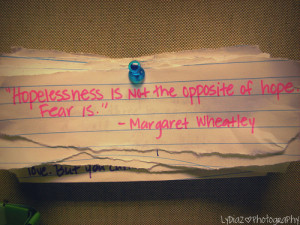 "Hopelessness is not the opposite of hope.
Fear is."
- Margaret Wheatley
love. But you can
LYdia2♡Photography